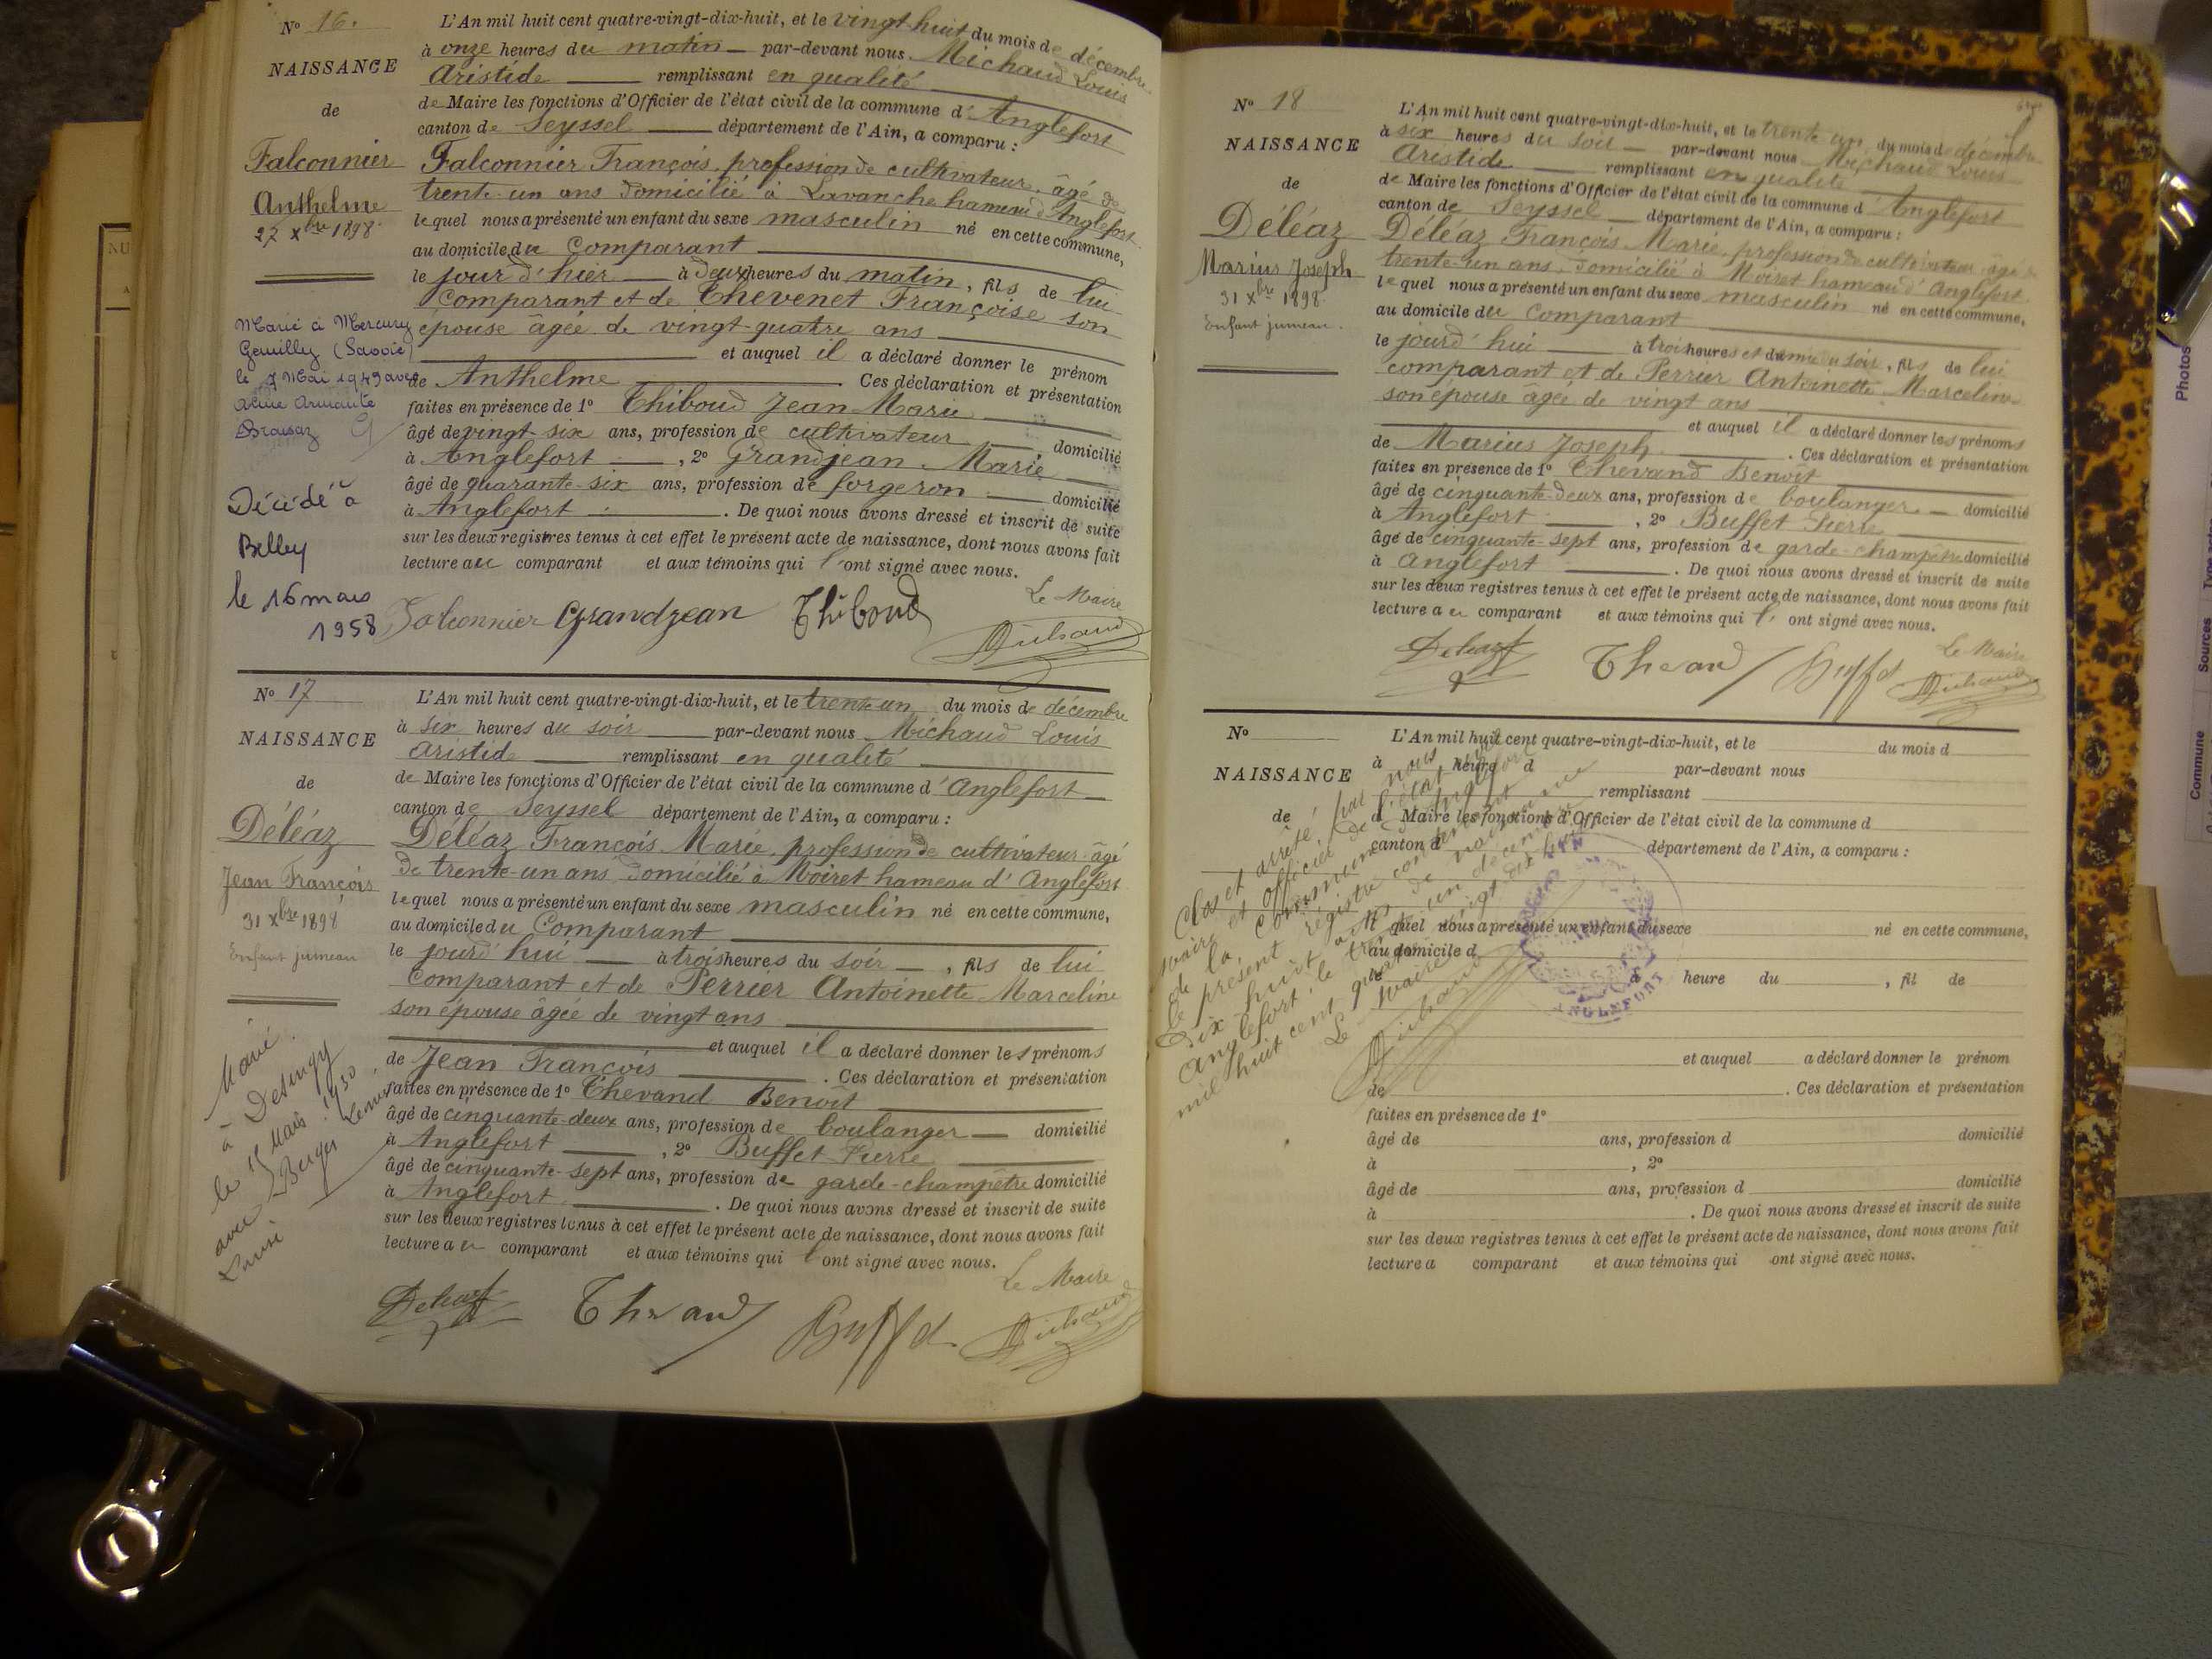 N° 16.
NAISSANCE
de
Falconnier
Anthelme
27 Xbre 1898.
Marié à Mercury
Gemilly (Savoie)
le 7 Mai 1949 avec
Décédé à
Belley
le 16 mars
1958
L'An mil huit cent quatre-vingt-dix-huit, et le vingt-huit du mois de décembre
à onze heures du matin par-devant nous Michaud Louis
Aristide remplissant en qualité
de Maire les fonctions d'Officier de l'état civil de la commune d'Anglefort
canton de Seyssel département de l'Ain, a comparu :
Falconnier François, profession de cultivateur, âgé de
trente-un ans domicilié à Lavanche hameau d'Anglefort
lequel nous a présenté un enfant du sexe masculin né en cette commune,
au domicile du comparant
le jour d'hier à deux heures du matin, fils de lui
comparant et de Chevenet Françoise son
épouse âgée de vingt-quatre ans
et auquel il a déclaré donner le prénom
de Anthelme Ces déclaration et présentation
faites en présence de 1° Thiboud Jean Marie
âgé de vingt-six ans, profession de cultivateur domicilié
à Anglefort , 2° Grandjean Marie
âgé de quarante-six ans, profession de forgeron domicilié
à Anglefort . De quoi nous avons dressé et inscrit de suite
sur les deux registres tenus à cet effet le présent acte de naissance, dont nous avons fait
lecture au comparant et aux témoins qui l'ont signé avec nous.
Le Maire
Falconnier Grandjean Thiboud Michaud
N° 17
NAISSANCE
de
Déléaz
Jean François
31 Xbre 1898
Enfant jumeau
Marié
à Desingy
le Mars 1930
avec Berger
Louise
L'An mil huit cent quatre-vingt-dix-huit, et le trente-un du mois de décembre
à six heures du soir par-devant nous Michaud Louis
Aristide remplissant en qualité
de Maire les fonctions d'Officier de l'état civil de la commune d'Anglefort
canton de Seyssel département de l'Ain, a comparu :
Déléaz François Marie, profession de cultivateur âgé
de trente-un ans domicilié à Moiret hameau d'Anglefort
lequel nous a présenté un enfant du sexe masculin né en cette commune,
au domicile du Comparant
le jourd'hui à trois heures du soir , fils de lui
comparant et de Perrier Antoinette Marceline
son épouse âgée de vingt ans
et auquel il a déclaré donner les prénoms
de Jean François . Ces déclaration et présentation
faites en présence de 1° Chevand Benoît
âgé de cinquante-deux ans, profession de boulanger domicilié
à Anglefort , 2° Buffet Pierre
âgé de cinquante-sept ans, profession de garde-champêtre domicilié
à Anglefort . De quoi nous avons dressé et inscrit de suite
sur les deux registres tenus à cet effet le présent acte de naissance, dont nous avons fait
lecture au comparant et aux témoins qui l'ont signé avec nous.
Le Maire
Buffet Michaud
N° 18
NAISSANCE
de
Déléaz
Marius Joseph
31 Xbre 1898.
Enfant jumeau.
L'An mil huit cent quatre-vingt-dix-huit, et le trente-un du mois de décembre
à six heures du soir par-devant nous Michaud Louis
Aristide remplissant en qualité
de Maire les fonctions d'Officier de l'état civil de la commune d'Anglefort
canton de Seyssel département de l'Ain, a comparu :
Déléaz François Marie, profession de cultivateur âgé de
trente-un ans, domicilié à Moiret hameau d'Anglefort.
lequel nous a présenté un enfant du sexe masculin né en cette commune,
au domicile du Comparant
le jourd'hui à trois heures et demie du soir, fils de lui
comparant et de Perrier Antoinette Marceline
son épouse âgée de vingt ans
et auquel il a déclaré donner les prénoms
de Marius Joseph . Ces déclaration et présentation
faites en présence de 1° Chevand Benoît
âgé de cinquante-deux ans, profession de boulanger domicilié
à Anglefort , 2° Buffet Pierre
âgé de cinquante-sept ans, profession de garde-champêtre domicilié
à Anglefort . De quoi nous avons dressé et inscrit de suite
sur les deux registres tenus à cet effet le présent acte de naissance, dont nous avons fait
lecture au comparant et aux témoins qui l'ont signé avec nous.
Le Maire
Buffet Michaud
N°
NAISSANCE
de
L'An mil huit cent quatre-vingt-dix-huit, et le du mois d
à heure d par-devant nous
remplissant
d Maire les fonctions d'Officier de l'état civil de la commune d
canton d département de l'Ain, a comparu :
le quel nous a présenté un enfant du sexe né en cette commune,
au domicile d
le à heure du , fil de
et auquel a déclaré donner le prénom
de . Ces déclaration et présentation
faites en présence de 1°
âgé de ans, profession d domicilié
à , 2°
âgé de ans, profession d domicilié
à . De quoi nous avons dressé et inscrit de suite
sur les deux registres tenus à cet effet le présent acte de naissance, dont nous avons fait
lecture a comparant et aux témoins qui ont signé avec nous.
Clos et arrêté par nous
maire et officier de l'état civil
de la commune d'Anglefort
le présent registre contenant
dix-huit actes de naissance
Anglefort, le trente un décembre
mil huit cent quatre vingt dix huit
Le Maire
Michaud
ANGLEFORT
Photos
Commune Sources